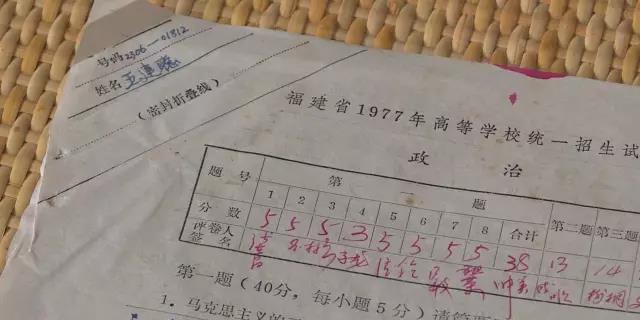 号码2306—01812
姓名王连聪
(密封折叠线)
福建省1977年高等学校统一招生试
政治
题号 第一题 第二题 第三题
1 2 3 4 5 6 7 8 合计
分数 5 5 5 3 5 5 5 5 38 13 14
评卷人
签名
第一题(40分,每小题5分)请简要
1.马克思主义的